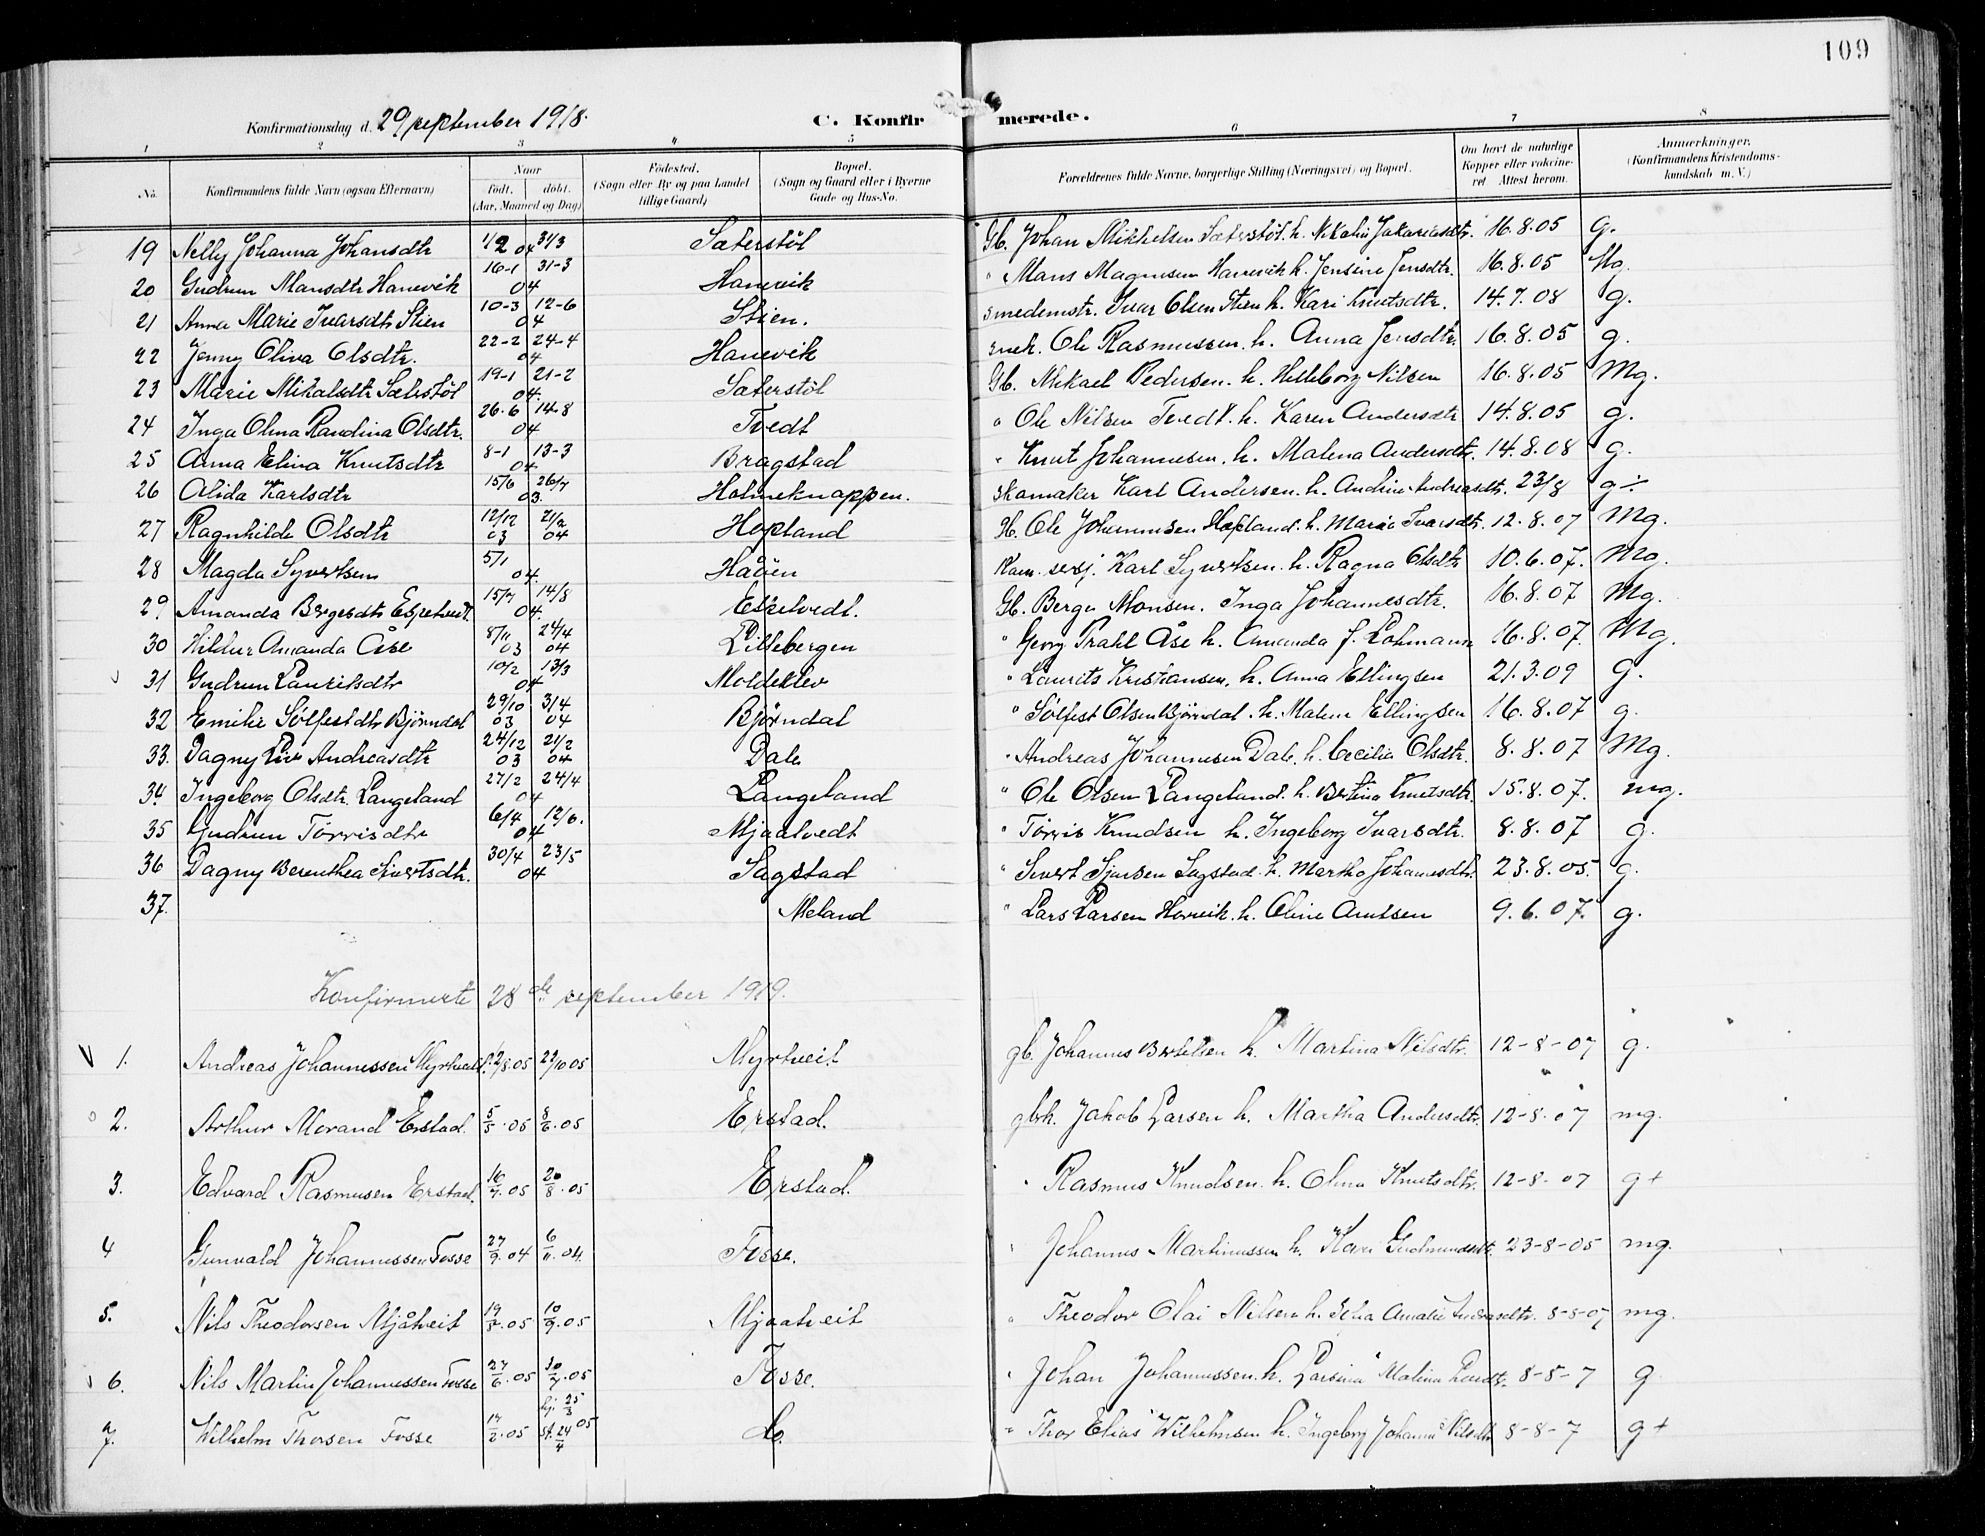 109
Konfirmationsdag d. 29 september 1918. C. Konfirmerede.
1 2 3 4 5 6 7 8
No. Konfirmandens fulde Navn (ogsaa Efternavn) Naar født. døbt. (Aar, Maaned og Dag) Fødested. (Sogn eller By og paa Landet tillige Gaard) Bopæl. (Sogn og Gaard eller i Byerne Gade og Hus-No. Forældrenes fulde Navne, borgerlige Stilling (Næringsvei) og Bopæl. Om havt de naturlige Kopper eller vaccineret Attest herom. Anmerkninger. (Konfirmandens Kristendomskundskab m. V.)
19 Nelly Johanna Johansdtr 1/2 04 31/3 Sæterstøl Gb. Johan Mikkelsen Sæterstøl. h. Jakariasdtr. 16.8.05 g.
20 Gudrun Mansdtr Hanevik 16-1 31-3 04 Hanevik " Mans Magnusen Hanevik h. Jensine Jensdtr. 16.8.05 Mg.
21 Anna Marie Ivarsdtr Stien 10-3 12-6 04 Stien. smedemstr. Ivar Olsen Stien h. Kari Knutsdtr. 14.7.08 g.
22 Jenny Oliva Olsdtr. 22-2 24-4 04 Hanevik snek. Ole Rasmussen. h. Anna Jensdtr. 16.8.05 g.
23 Marie Mikalsdtr Sæterstøl 19-1 21-2 04. Sæterstøl Gb. Mikael Pedersen. h. Hilleborg Nilsen 16.8.05 Mg.
24 Inga Olina Randina Olsdtr. 26.6 14-8 04 Tvedt " Ole Nilsen Tvedt. h. Karen Andersdtr 14.8.05 g.
25 Anna Elina Knutsdtr 8-1 13-3 04 Bragstad " Knut Johannesen. h. Malena Andersdtr. 14.8.08 g.
26 Alida Karlsdtr 15/6 26/7 03. Holmeknappen. Skomaker Karl Andersen. h. Andrine Andreasdtr. 23/8 g÷
27 Ragnhilda Olsdtr 12/12 03 21/2 04 Hopland Gb. Ole Johannesen Hopland. h. Marie Ivarsdtr. 12.8.07 Mg.
28 Magda Syvertsen 5/1 04. Håøen Karl Syvertsen. h. Ragna Olsdtr 10.6.07. Mg.
29 Amanda Bergesdtr Eknetveit. 15/7 14/8 04. Eknetvedt. Gb. Berge Monsen. Inga Johannesdtr. 16.8.07 Mg.
30 Hildur Amanda Åse 8/11 03 24/4 04 Littlebergen " Georg Prahl Åse h. Amanda f. Lohmann 16.8.07. Mg.
31 Gudrun Lauritsdtr 10/2 13/3 04 Moldeklev " Laurits Kristiansen. h. Anna Ellingsen 21.3.09 g.
32 Emilie Sølfestdtr Bjørndal 29/10 03 3/4 04 Bjørndal " Sølfest Olsen Bjørndal. h. Malene Ellingsen 16.8.07 g.
33. Dagny Liv Andreasdtr 24/12 03 21/2 04 Dale " Andreas Johannesen Dale. h. Cecilia Olsdtr. 8.8.07 Mg.
34 Ingeborg Olsdtr. Langeland 27/2 24/4 04 Langeland " Ole Olsen Langeland. h. Bertina Knutsdtr. 15.8.07. mg.
35 Gudrun Tørrisdtr 6/4 12/6. 04 Mjaatvedt " Tørris Knudsen h. Ingeborg Ivarsdtr. 8.8.07 g.
36 Dagny Berenthea Sivertsdtr. 30/4 23/5 04 Sagstad " Sivert Sjursen Sagstad. h. Martha Johannesdtr. 23.8.05. g.
37. Meland " Lars Larsen h. Oline Arntsen 9.6.07. g.
Konfirmerte 28de september 1919.
V 1. Andreas Johannessen Myrtveit 12/8.05 22/10 05 Myrtveit gb. Johannes Bertelsen h. Martina Nilsdtr. 12-8-07 g.
2. Arthur Morand Erstad. 5/5.05 8/6.05 Erstad. gbr. Jakob Larsen h. Martha Andersdtr. 12-8-07 mg.
3. Edvard Rasmusen Erstad. 16/7.05 20/8.05 Erstad. " Rasmus Knudsen h. Olina Knutsdtr. 12-8-07 g+
4 Gunvald Johannessen Fosse 27/9.04 6/11.04. Fosse. " Johannes Martinussen h. Kari Gudmundsdtr. 23-8-05 mg.
5. Nils Theodorsen Mjåtveit 19/8.05 10/9.05 Mjaatveit " Theodor Olai Nilsen h. Amalie Andreasdtr. 8-8-07 mg.
6. Nils Martin Johannessen Fosse 27/6.05 30/7.05 Fosse. " Johan Johannessen. h. Larsina Malina 8-8-7 g
7. Wilhelm Thorsen Fosse 17/2.05 hj. 25/3 st. 24/4 05 do. " Thor Elias Wilhelmsen h. Ingeborg Johanne Nilsdtr 8-8-7 g+